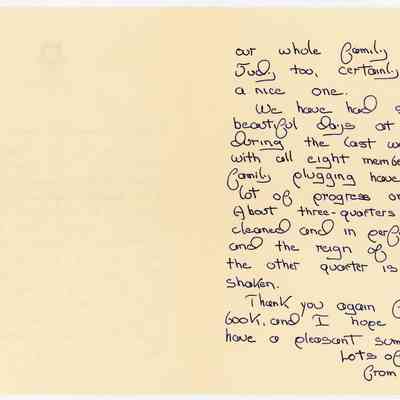 our whole family
Judy too, certainly
a nice one.
We have had s
beautiful days at
during the last we
with all eight membe
family plugging have
lot of progress on
About three-quarters
cleaned and in perf
and the reign of
the other quarter is
shaken.
Thank you again f
book, and I hope
have a pleasant sum
Lots of
from